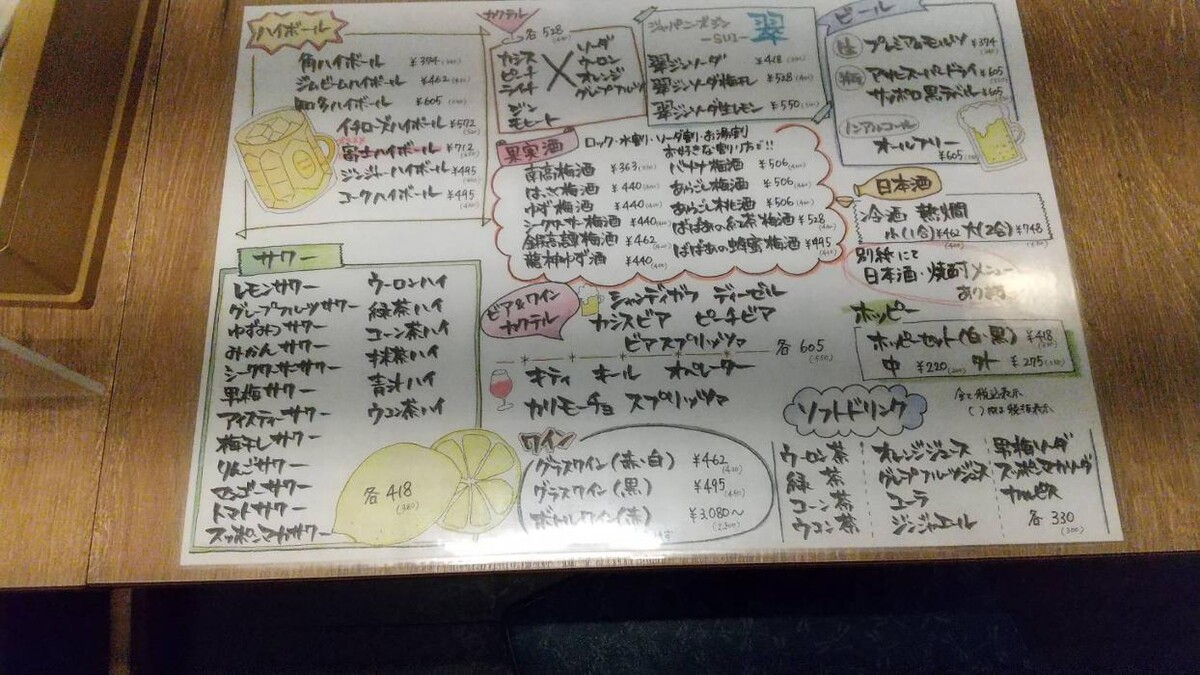 ハイボール
角ハイボール ¥374
ジムビームハイボール ¥462
知多ハイボール ¥605
イチローズハイボール ¥572
富士ハイボール ¥712
ジンジャーハイボール ¥495
コークハイボール ¥495
カクテル
各528
カシス
ピーチ
ライチ
ジン
モヒート
×
ソーダ
ウーロン
オレンジ
グレープフルーツ
ジャパニーズジン
-SUI- 翠
翠ジンソーダ ¥418
翠ジンソーダ梅干し ¥528
翠ジンソーダ生レモン ¥550
ビール
生 プレミアムモルツ ¥374
瓶 アサヒスーパードライ ¥605
サッポロ黒ラベル ¥605
ノンアルコール
オールフリー
¥605
果実酒
ロック・水割り・ソーダ割・お湯割
お好きな割り方で!!
南高梅酒 ¥363
はっさく梅酒 ¥440
ゆず梅酒 ¥440
シークワーサー梅酒 ¥440
鍋高譚梅酒 ¥462
龍神ゆず酒 ¥440
バナナ梅酒 ¥506
あらごし梅酒 ¥506
あらごし桃酒 ¥506
ばばあの紅茶梅酒 ¥528
ばばあの蜂蜜梅酒 ¥495
日本酒
冷酒 熱燗
小(1合) ¥462 大(2合) ¥748
別紙にて
日本酒・焼酎メニュー
あります
サワー
レモンサワー
グレープフルーツサワー
ゆずみつサワー
みかんサワー
シークワーサーサワー
男梅サワー
アイスティーサワー
梅干しサワー
りんごサワー
マンゴーサワー
トマトサワー
スッポンマカサワー
ウーロンハイ
緑茶ハイ
コーン茶ハイ
抹茶ハイ
青汁ハイ
ウコン茶ハイ
各418
(380)
ビア&ワイン
カクテル
シャンディガフ ディーゼル
カシスビア ピーチビア
ビアスプリッツァ
各605
(550)
キティ キール オペレーター
カリモーチョ スプリッツァ
ホッピー
ホッピーセット(白・黒) ¥418
中 ¥220 外 ¥275
ワイン
グラスワイン(赤・白) ¥462
グラスワイン(黒) ¥495
ボトルワイン(赤) ¥3,080〜
ソフトドリンク
全て税込表示
( )内は税抜表示
ウーロン茶
緑茶
コーン茶
ウコン茶
オレンジジュース
グレープフルーツジュース
コーラ
ジンジャエール
男梅ソーダ
スッポンマカソーダ
カルピス
各330
(300)